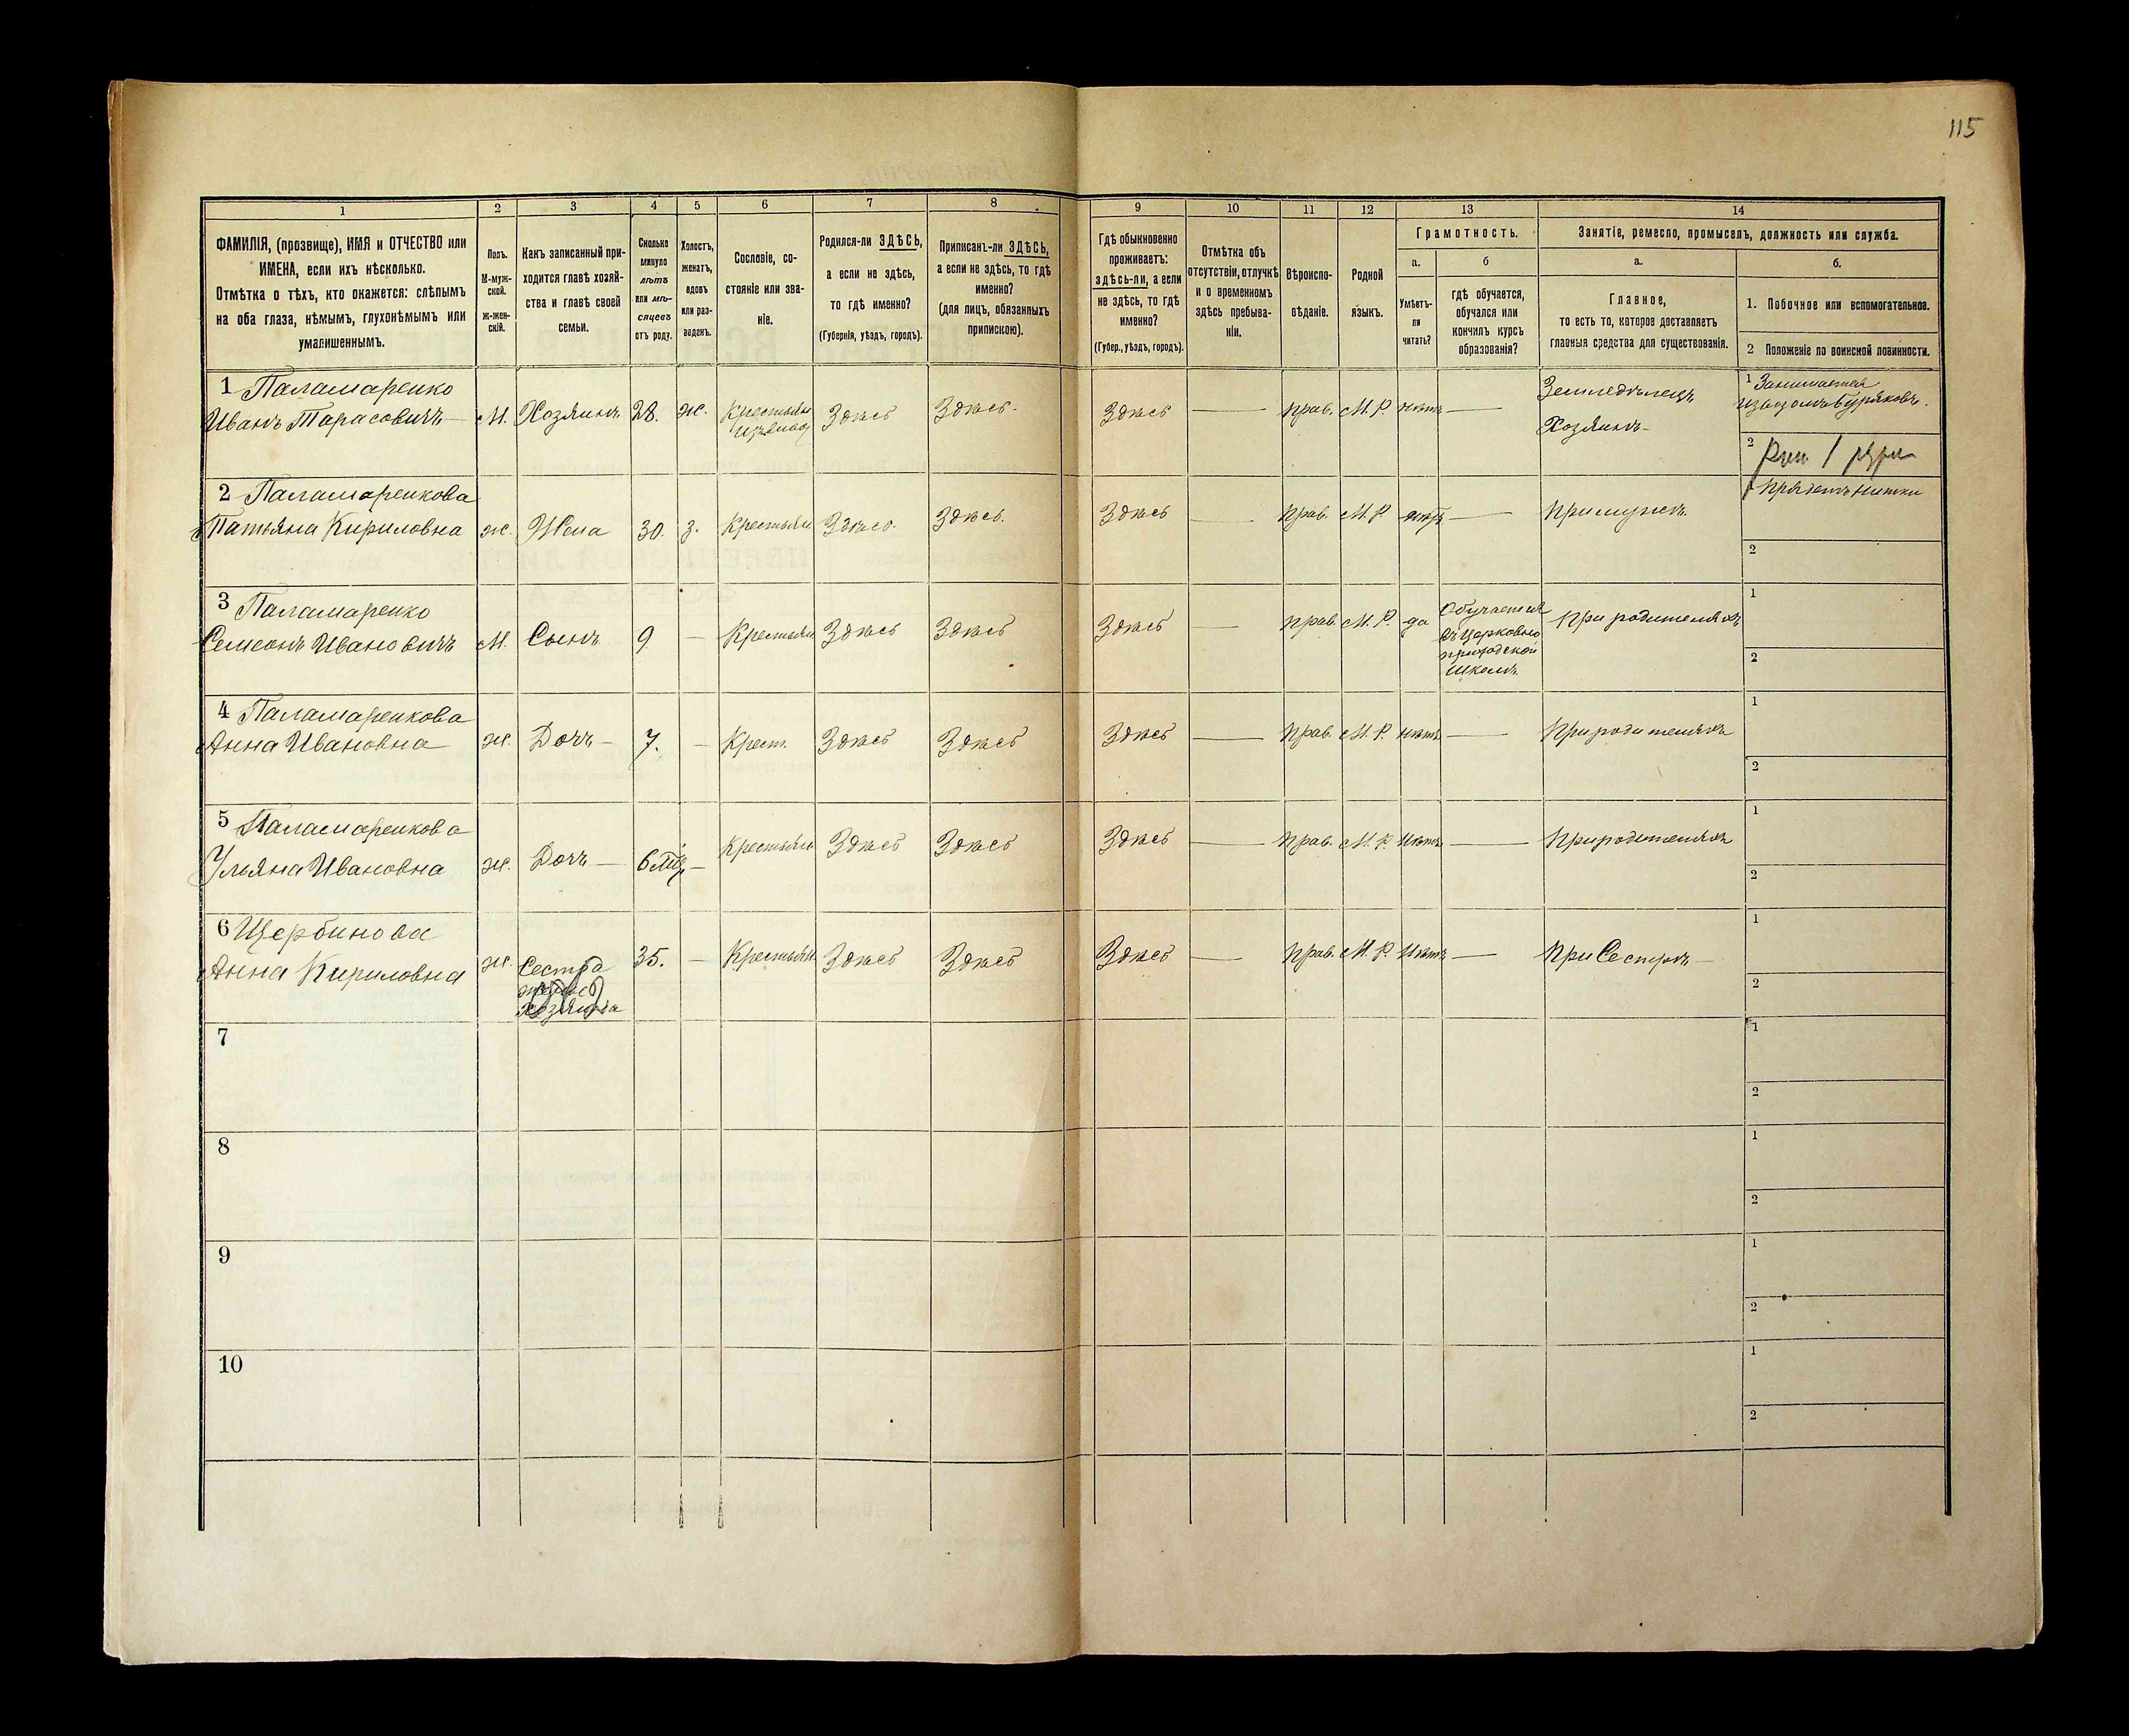 115
1
2
3
4
5
6
7
8
9
10
11
12
13
14
ФАМИЛІЯ, (прозвище), ИМЯ и ОТЧЕСТВО или
ИМЕНА, если ихъ нѣсколько.
Отмѣтка о тѣхъ, кто окажется: слѣпымъ
на оба глаза, нѣмымъ, глухонѣмымъ или
умалишеннымъ.
Полъ.
М-муж-
ской.
Ж-жен-
скій.
Какъ записанный при-
ходится главѣ хозяй-
ства и главѣ своей
семьи.
Сколько
минуло
лѣтъ
или мѣ-
сяцевъ
отъ роду.
Холостъ,
женатъ,
вдовъ
или раз-
веденъ.
Сословіе, со-
стояніе или зва-
ніе.
Родился-ли ЗДѢСЬ,
а если не здѣсь,
то гдѣ именно?
(Губернія, уѣздъ, городъ).
Приписанъ-ли ЗДѢСЬ,
а если не здѣсь, то гдѣ
именно?
(для лицъ, обязанныхъ
припискою).
Гдѣ обыкновенно
проживаетъ:
здѣсь-ли, а если
не здѣсь, то гдѣ
именно?
(Губер., уѣздъ, городъ).
Отмѣтка объ
отсутствіи, отлучкѣ
и о временномъ
здѣсь пребыва-
ніи.
Вѣроиспо-
вѣданіе.
Родной
языкъ.
Грамотность.
а.
Умѣетъ-
ли
читать?
б
гдѣ обучается,
обучался или
кончилъ курсъ
образованія?
Занятіе, ремесло, промыселъ, должность или служба.
а.
Главное,
то есть то, которое доставляетъ
главныя средства для существованія.
б.
1. Побочное или вспомогательное.
2 Положеніе по воинской повинности.
1 Паламаренко
Иванъ Тарасовичъ —
М.
Хозяинъ
28.
ж.
Здѣсь
Здѣсь.
Здѣсь
—
прав.
М. Р.
нѣтъ
—
Земледѣлецъ
Хозяинъ
1 Занимается
извозомъ Буряковъ.
2
2 Паламаренкова
Татьяна Кириловна
ж.
Жена
30.
з.
Крестьян
Здѣсь.
Здѣсь.
Здѣсь
—
прав.
М. Р
нѣтъ
—
При мужѣ
1 Прядетъ нитки
2
3 Паламаренко
Семеонъ Ивановичъ
М.
Сынъ
9
—
Крестьян
Здѣсь
Здѣсь
Здѣсь
—
прав.
М. Р.
да
Обучается
въ Церковно
приходской
школѣ.
При родителяхъ
1
2
4 Паламаренкова
Анна Ивановна
ж.
Дочь —
7.
—
Крест.
Здѣсь
Здѣсь
Здѣсь
—
прав.
М. Р.
нѣтъ
—
При родителяхъ
1
2
5 Паламаренкова
Ульяна Ивановна
ж.
Дочь —
6 мѣс.
—
Крестьян
Здѣсь
Здѣсь
Здѣсь
—
прав.
М. Р.
нѣтъ
—
При родителяхъ
1
2
6 Щербинова
Анна Кириловна
ж.
Сестра
жены
хозяина
35.
—
Крестьян
Здѣсь
Здѣсь
Здѣсь
—
прав.
М. Р.
нѣтъ
—
При Сестрѣ —
1
2
7
1
2
8
1
2
9
1
2
10
1
2